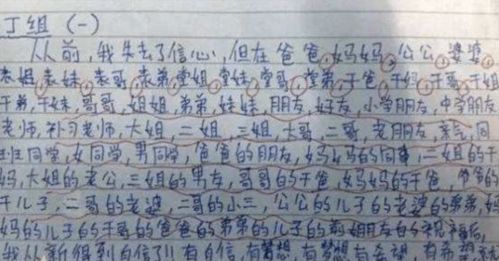 丁组 (一)
从前,我失去了信心,但在爸爸,妈妈,公公,婆婆
表姐,表妹,表哥,表弟,堂姐,堂妹,堂哥,堂弟,干爸,干妈,干哥,干姐
干弟,干妹,哥哥,姐姐,弟弟,妹妹,朋友,好友,小学朋友,中学朋友
老师,补习老师,大姐,二姐,三姐,大哥,二哥,老朋友,亲戚,同
班同学,女同学,男同学,爸爸的朋友,妈妈的同事,二姐的干
妈,大姐的老公,三姐的男友,哥哥的干爸,妈妈的干爸,爷爷的
干儿子,二哥的老婆,二哥的小三,公公的儿子的老婆的弟弟,妈
妈的儿子的干哥的爸爸的弟弟的儿子的前姐朋友的
我从新得到自信了!!有自信,有梦想,有梦想有希望,有希